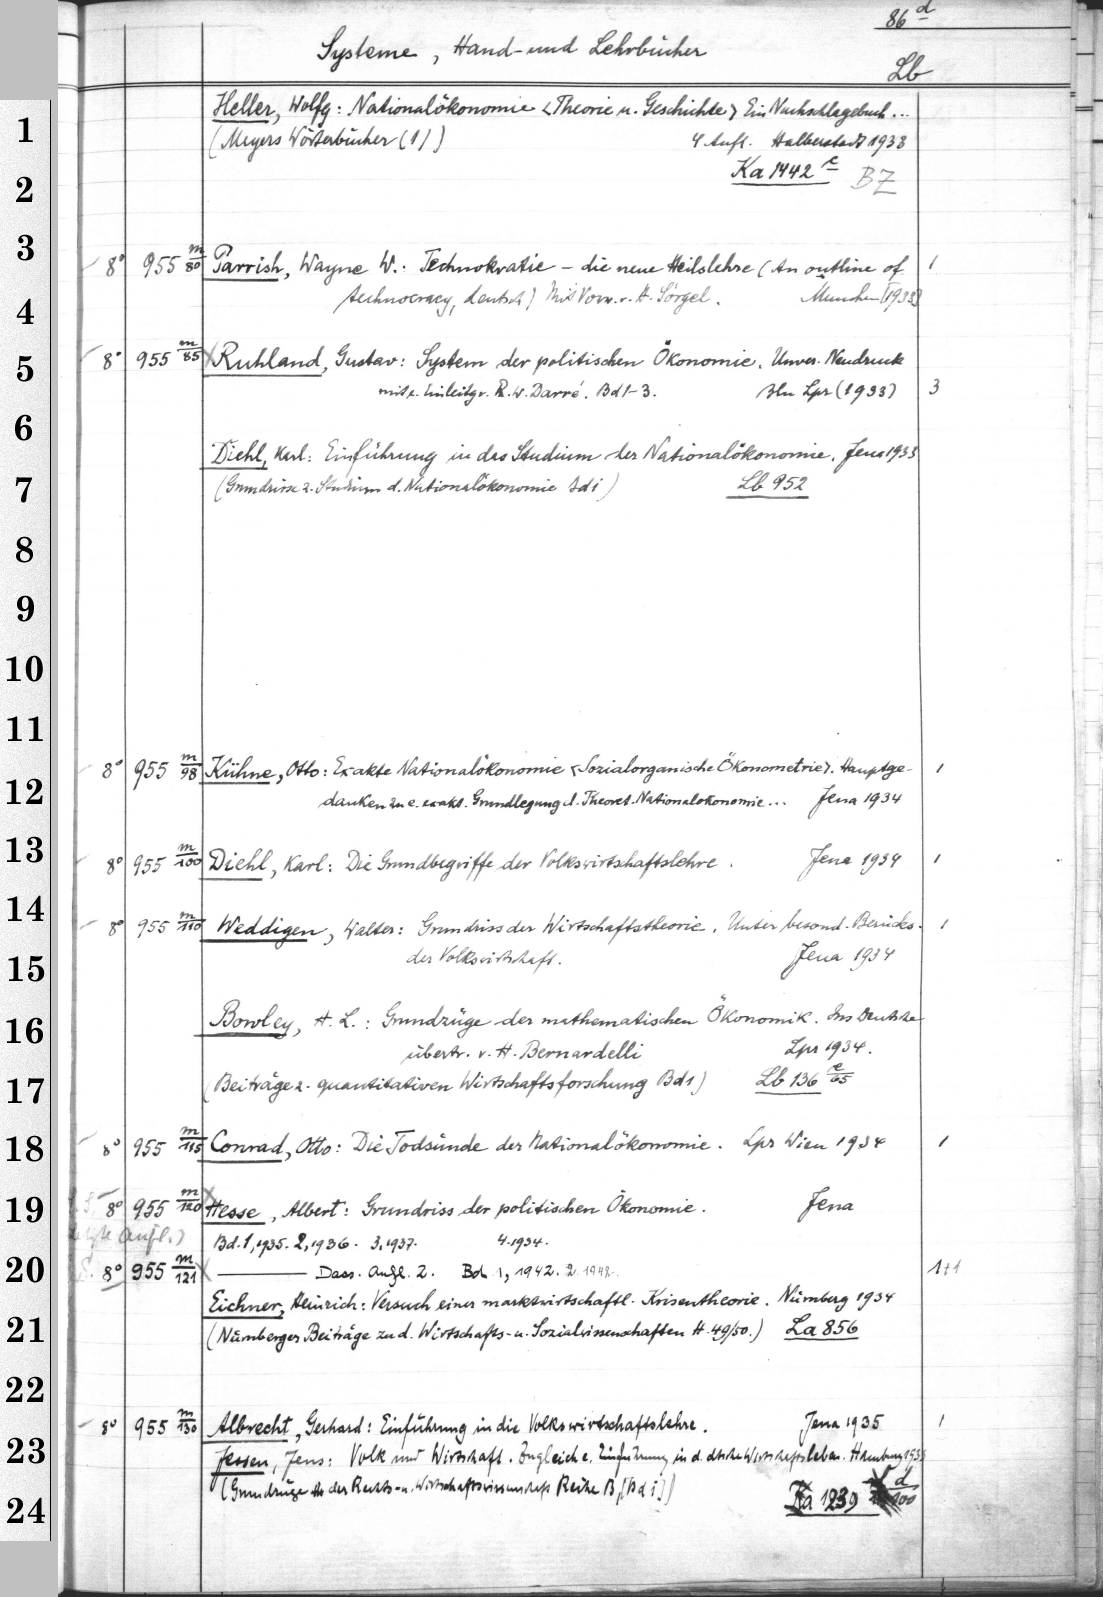 86 d
Systeme, Hand- und Lehrbücher
Lb
1
Heller, Wolfg: Nationalökonomie <Theorie u. Geschichte> Ein Nachschlagebuch...
(Meyers Wörterbücher (1)) 4 Aufl. Halberstadt 1933
2
Ka 1442 e BZ
3
8° 955 m/80 Parrish, Wayne W.: Technokratie – die neue Heilslehre (An outline of 1
4
technocracy, deutsch) Mit Vorw. v. H. Sörgel. München [1933]
5
8° 955 m/85 Ruhland, Gustav: System der politischen Ökonomie. Unver. Neudruck
mit e. Einleitg v. R. W. Darré. Bd 1–3. Bln Lpz (1933) 3
6
Diehl, Karl: Einführung in das Studium der Nationalökonomie. Jena 1933
7
(Grundrisse z. Studium d. Nationalökonomie Bd 1) Lb 952
8
9
10
11
8° 955 m/98 Kühne, Otto: Exakte Nationalökonomie <Sozialorganische Ökonometrie>. Hauptge- 1
12
danken zu e. exakt. Grundlegung d. Theoret. Nationalökonomie... Jena 1934
13
8° 955 m/100 Diehl, Karl: Die Grundbegriffe der Volkswirtschaftslehre. Jena 1934 1
14
8° 955 m/110 Weddigen, Walter: Grundriss der Wirtschaftstheorie. Unter besond. Berücks. 1
15
der Volkswirtschaft. Jena 1934
16
Bowley, A. L.: Grundzüge der mathematischen Ökonomik. Ins Deutsche
übertr. v. H. Bernardelli Lpz 1934.
17
(Beiträge z. quantitativen Wirtschaftsforschung Bd 1) Lb 136 e/65
18
8° 955 m/115 Conrad, Otto: Die Todsünde der Nationalökonomie. Lpz Wien 1934 1
19
8° 955 m/120 Hesse, Albert: Grundriss der politischen Ökonomie. Jena
Aufl.) Bd. 1, 1935. 2, 1936. 3, 1937. 4. 1934.
20
8° 955 m/121 ——— Dass. Aufl. 2. Bd. 1, 1942. 2 1942. 1+1
Eichner, Heinrich: Versuch einer marktwirtschaftl. Krisentheorie. Nürnberg 1934
21
(Nürnberger Beiträge zu d. Wirtschafts- u. Sozialwissenschaften H. 49/50.) La 856
22
8° 955 m/130 Albrecht, Gerhard: Einführung in die Volkswirtschaftslehre. Jena 1935 1
23
Jessen, Jens: Volk und Wirtschaft. Zugleich e. Einführung in d. dtsche Wirtschaftsleben. Hamburg 1935
(Grundzüge der Rechts- u. Wirtschaftswissenschaft Reihe B, [Bd 1])
24
Ka 1239 d/100